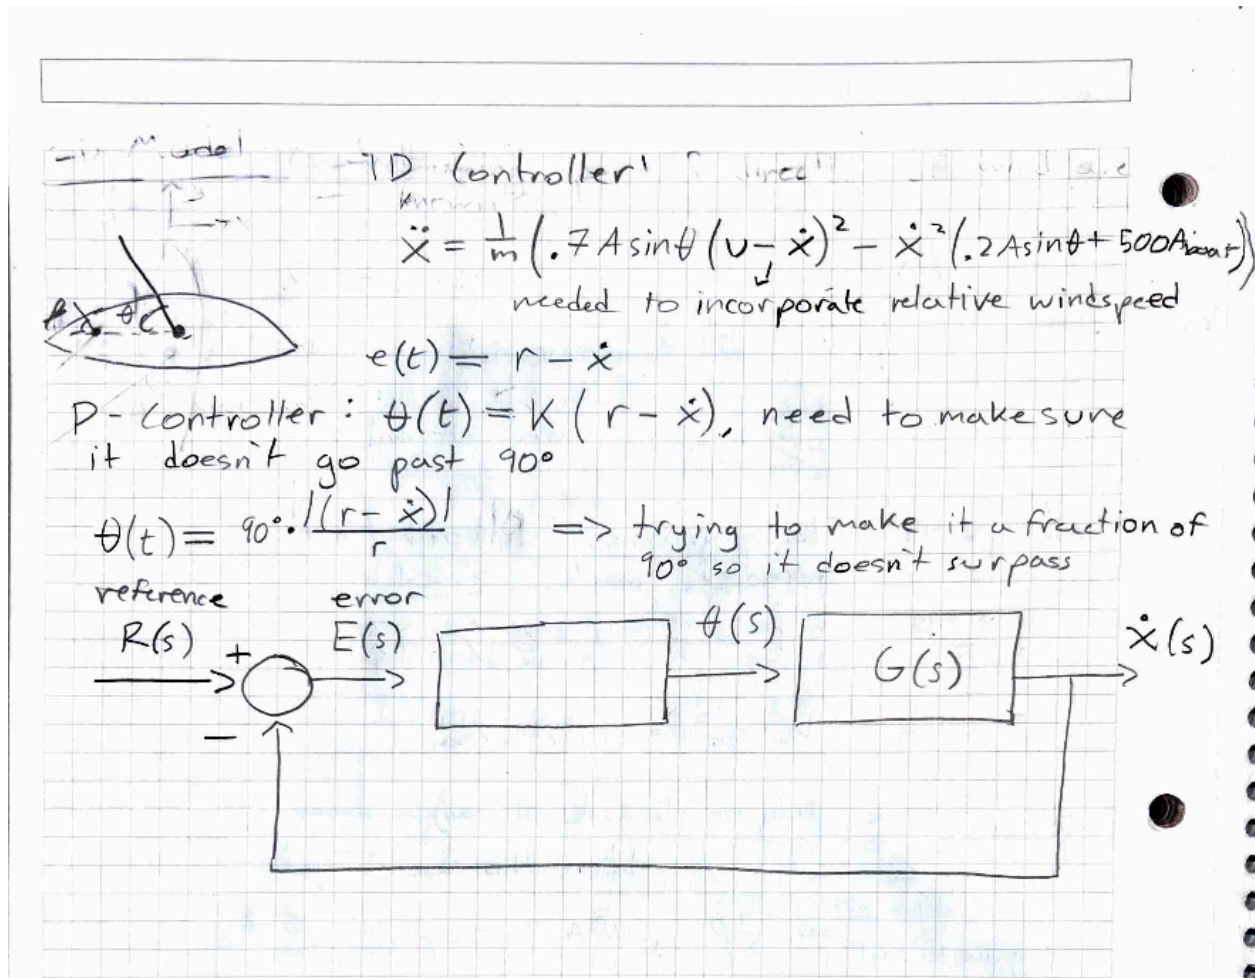 Model
1D Controller
ẍ = 1/m (.7 A sinθ (v - ẋ)² - ẋ² (.2 A sinθ + 500 Aboat))
needed to incorporate relative windspeed
θ
e(t) = r - ẋ
P-Controller: θ(t) = K (r - ẋ), need to make sure
it doesn't go past 90°
θ(t) = 90° · |(r - ẋ)| / r => trying to make it a fraction of
90° so it doesn't surpass
reference error
R(s) + E(s) θ(s) G(s) ẋ(s)
−